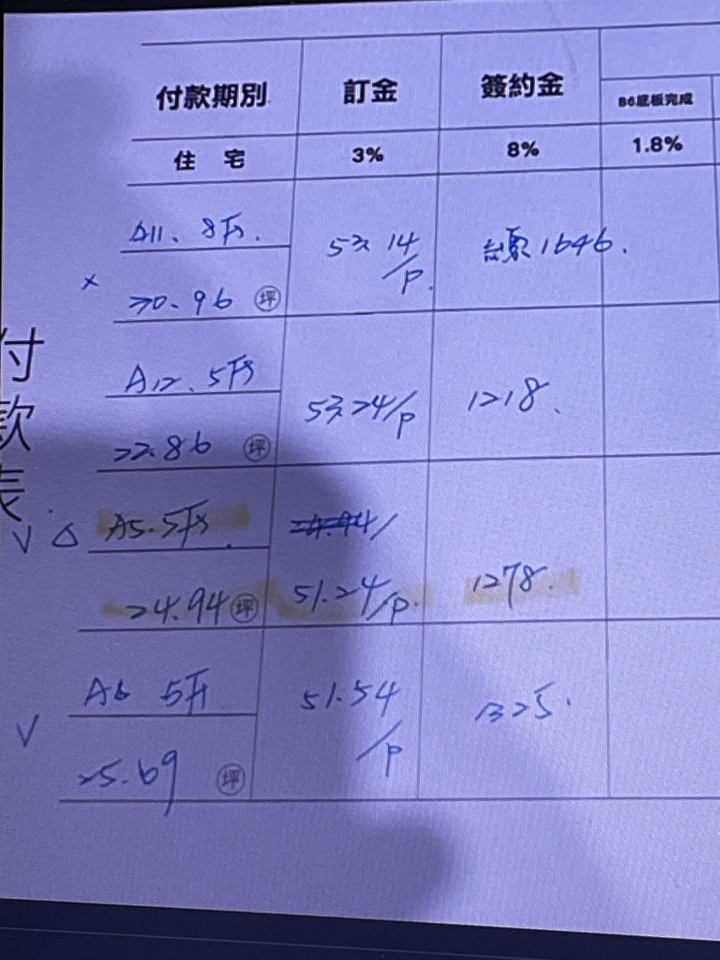 付款期別 訂金 簽約金
B6底板完成
住 宅 3% 8% 1.8%
A11. 8F.
53.14 /P. 總1646.
× 30.96 坪
A12. 5F
53.24/P 1218.
22.86 坪
付款表
V △ A5. 5F
24.94 坪 51.24/P. 1278.
A6 5F
51.54 /P 1325.
V 25.69 坪